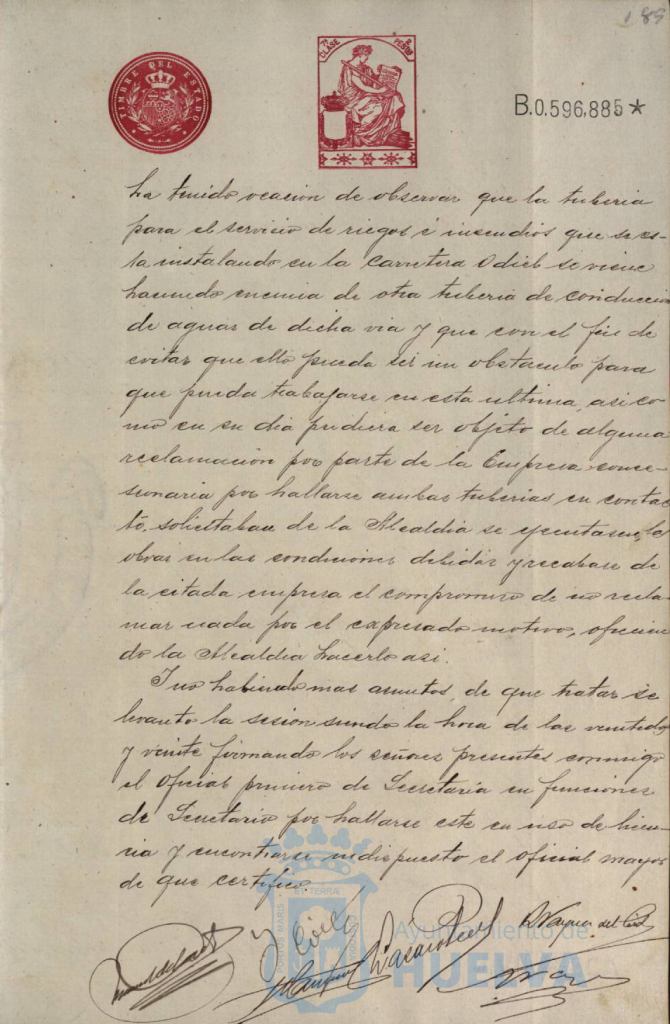 189
TIMBRE DEL ESTADO
7ª CLASE
2 PESETAS
B.0.596,885*
ha tenido ocacion de observar que la tuberia
para el servicio de riegos é incendios que se es-
ta instalando en la carretera Odiel se viene
haciendo encima de otra tuberia de conduccion
de aguas de dicha via y que con el fin de
evitar que ello pueda ser un obstaculo para
que pueda trabajarse en esta ultima, asi co
mo en su dia pudiera ser objeto de alguna
reclamación por parte de la Empresa conce-
sionaria por hallarse ambas tuberias en contac
to, solicitaban de la Alcaldia se ejecutasen las
obras en las condiciones debidas y recabase de
la citada empresa el compromiso de no recla-
mar nada por el expresado motivo, ofrecien
do la Alcaldia hacerlo asi.
Y no habiendo mas asuntos, de que tratar se
levanto la sesion siendo la hora de las veintidos
y veinte firmando los señores presentes conmigo
el oficial primero de Secretaría en funciones
de Secretario por hallarse este en uso de licen-
cia y encontrarse indispuesto el oficial mayor
de que certifico.
Ayuntamiento de
HUELVA